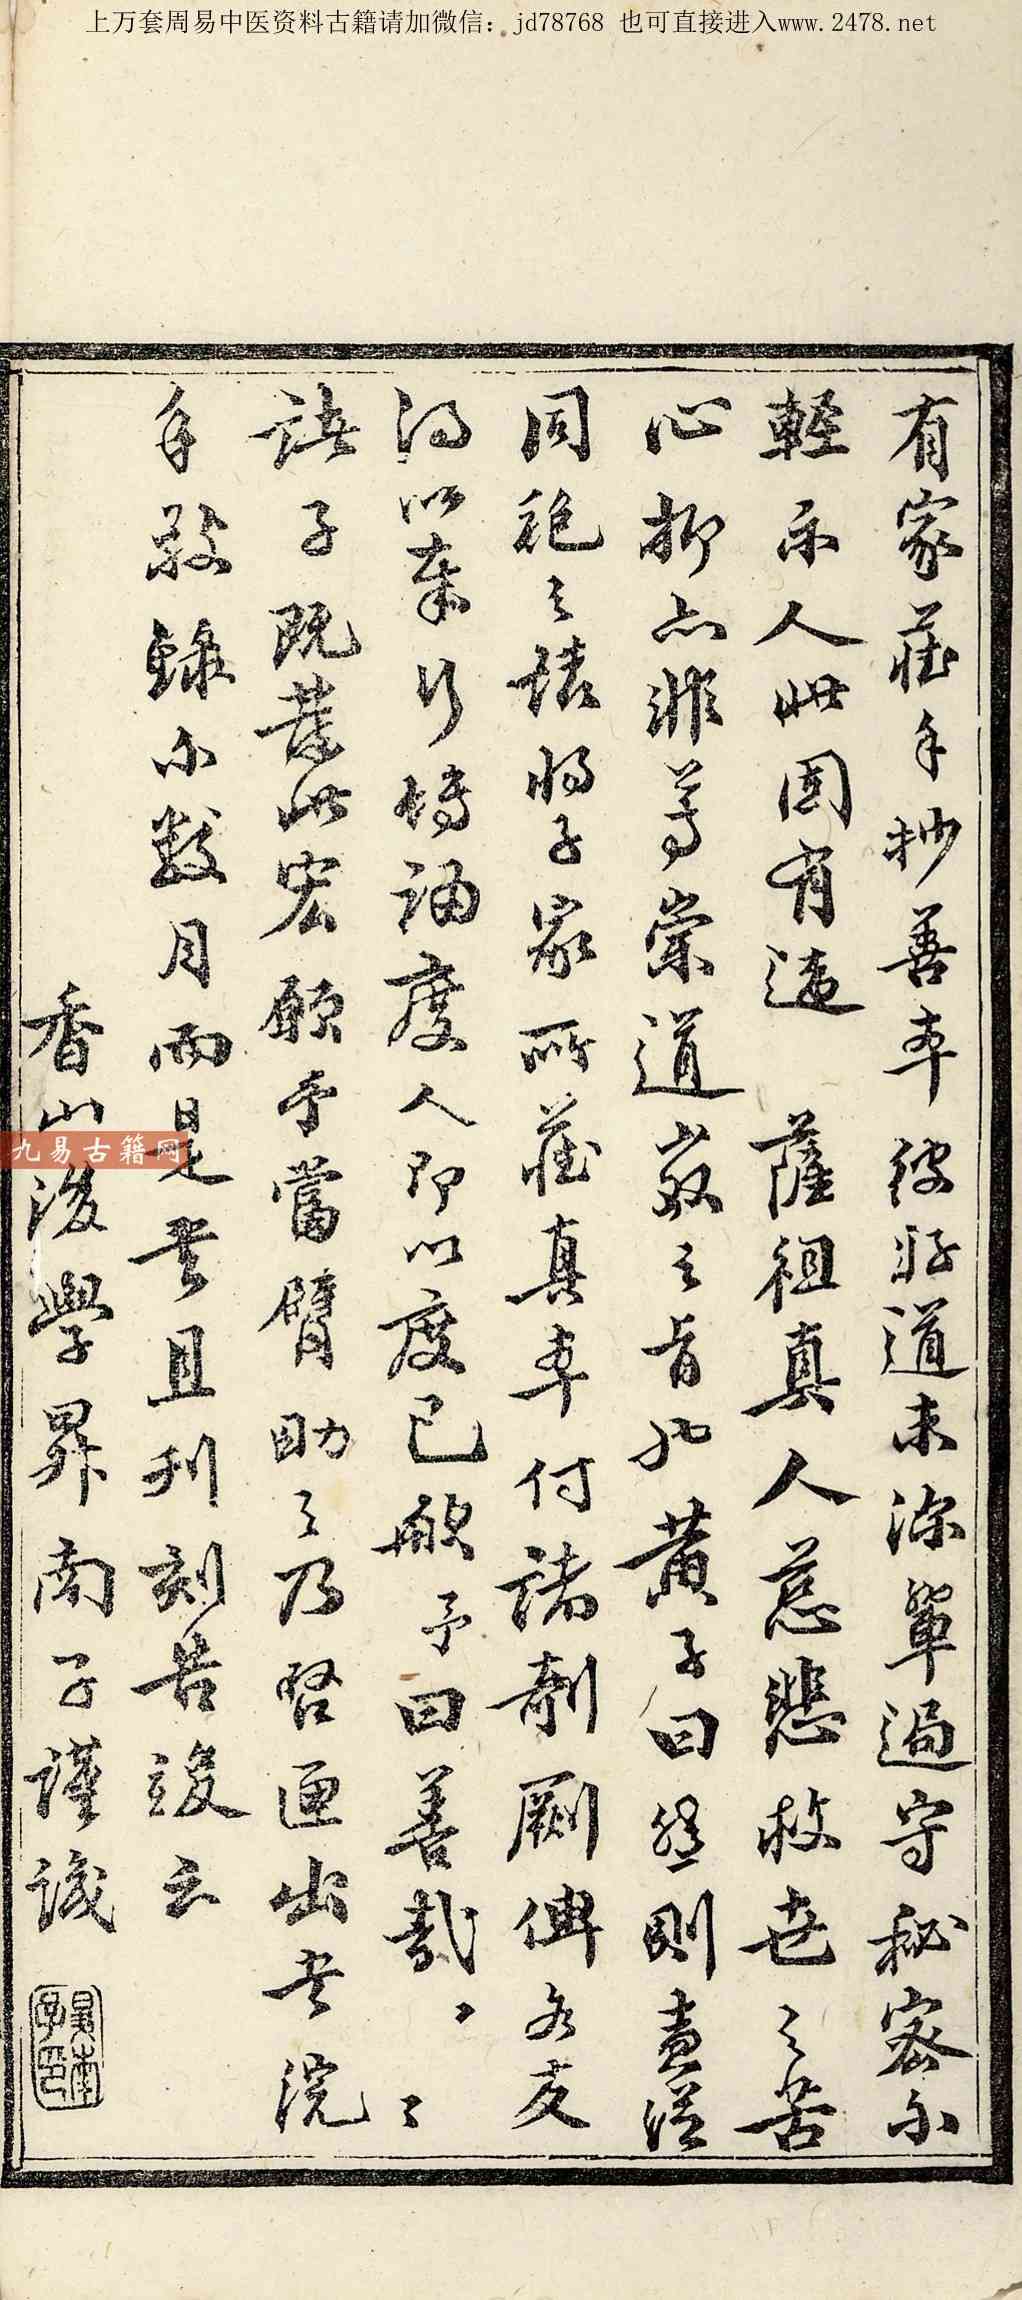 上万套周易中医资料古籍请加微信：jd78768 也可直接进入www.2478.net
有家藏手抄善本彼好道未深單過守秘密不
輕示人此固有違　薩祖真人慈悲救世之苦
心抑亦非尊崇道教之旨也黃子曰然則盍從
同袍之請將子家所藏真本付諸剞劂俾各友
得以奉行持誦度人即以度己歟予曰善哉〻〻
諸子既發此宏願予當臂助之乃啓匣出書浣
手敬錄不數月而是書且刊刻告竣云
香山後學昇南子謹識
昇南子印
九易古籍网